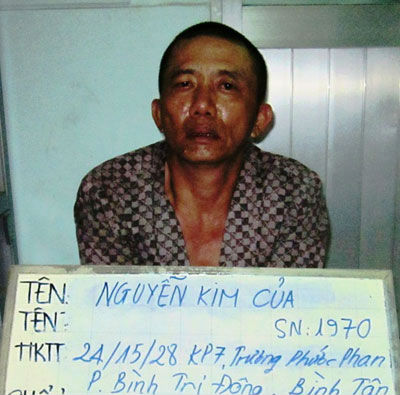 TÊN: NGUYỄN KIM CỦA
TÊN: SN: 1970
TIKTT 24/15/28 KP7, Trương Phước Phan
P. Bình Trị Đông, Bình Tân